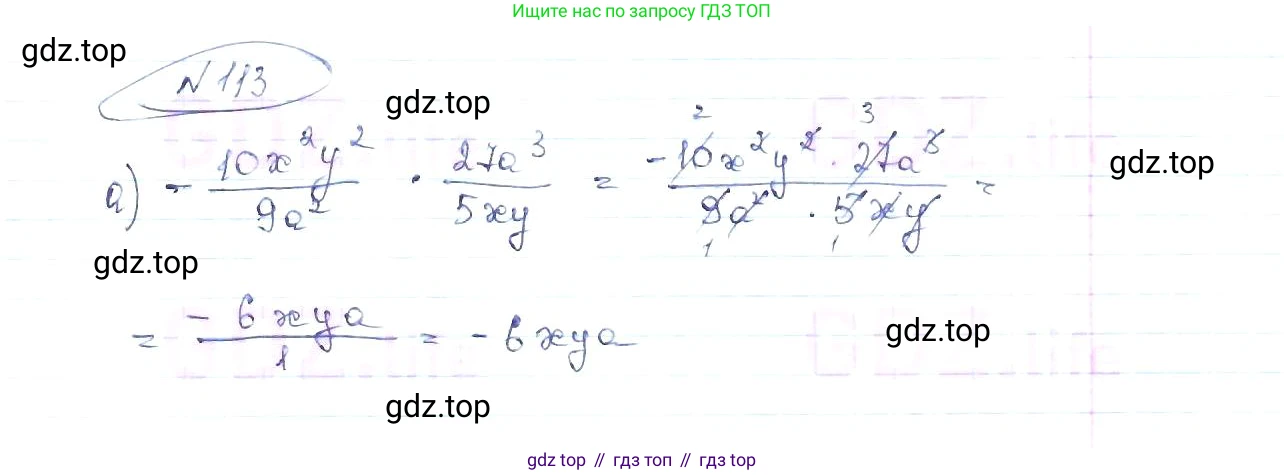 Ищите нас по запросу ГДЗ ТОП
gdz.top
№ 113
gdz.top
gdz.top
а) - 10x²y² / 9a² · 27a³ / 5xy = -10x²y² · 27a³ / 9a² · 5xy =
2 3
1 1
gdz.top
= - 6xya / 1 = - 6xya
gdz.top
gdz.top
gdz.top // гдз топ // гдз top